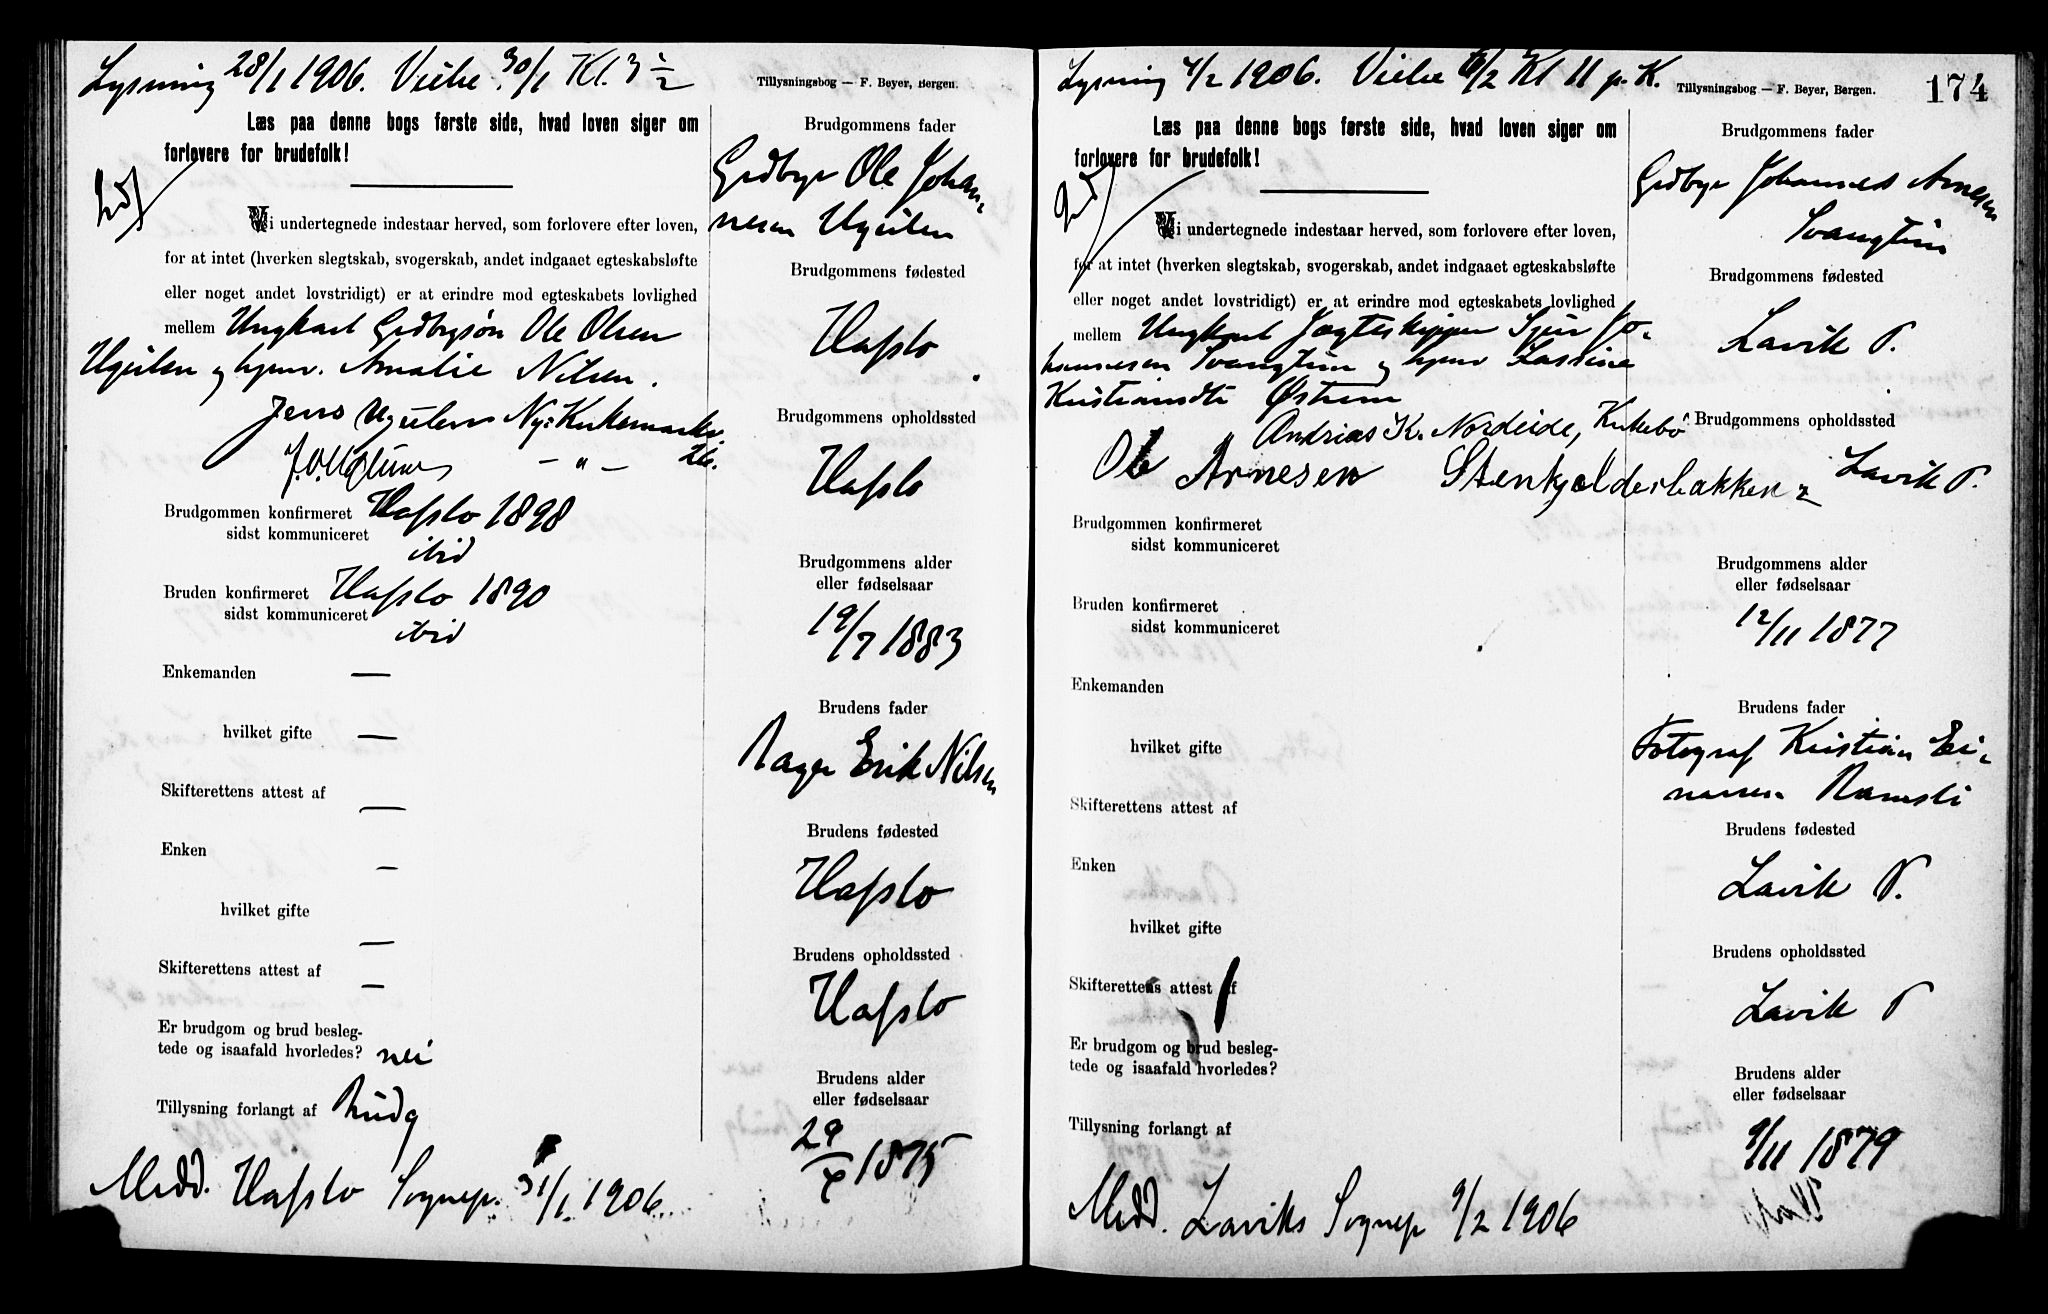 Lysning 28/1 1906. Vielse 30/1 Kl. 3 1/2
Tillysningsbog — F. Beyer, Bergen.
Læs paa denne bogs første side, hvad loven siger om
forlovere for brudefolk!
Vi undertegnede indestaar herved, som forlovere efter loven,
for at intet (hverken slegtskab, svogerskab, andet indgaaet egteskabsløfte
eller noget andet lovstridigt) er at erindre mod egteskabets lovlighed
mellem Ungkarl Grdbrgsøn Ole Olsen
Ugulen og hjem. Amalie Nilsen.
Jens Ugulen Ny: Kirkemarks
— „ — 26.
Brudgommen konfirmeret Hafslo 1898
sidst kommuniceret ibid
Bruden konfirmeret Hafslo 1890
sidst kommuniceret ibid
Enkemanden —
hvilket gifte —
Skifterettens attest af —
Enken —
hvilket gifte —
Skifterettens attest af —
Er brudgom og brud besleg-
tede og isaafald hvorledes? nei
Tillysning forlangt af Brudg
Medd. Hafslo Sognep. 31/1 1906.
Brudgommens fader
Grdbrgr Ole Johan-
nesen Ugulen
Brudgommens fødested
Hafslo
Brudgommens opholdssted
Hafslo
Brudgommens alder
eller fødselsaar
19/7 1883
Brudens fader
Bager Erik Nilsen
Brudens fødested
Hafslo
Brudens opholdssted
Hafslo
Brudens alder
eller fødselsaar
29/ 1875
Lysning 4/2 1906. Vielse /2 Kl 11 p. K.
Tillysningsbog — F. Beyer, Bergen.
174
Læs paa denne bogs første side, hvad loven siger om
forlovere for brudefolk!
Vi undertegnede indestaar herved, som forlovere efter loven,
for at intet (hverken slegtskab, svogerskab, andet indgaaet egteskabsløfte
eller noget andet lovstridigt) er at erindre mod egteskabets lovlighed
mellem Ungkarl Jægteskipper Sjur Jo-
hannesen Svangtun og hjem
Østrem
Andrias K. Nordeide, Kirkebø
Ole Arnesen Stenkjelderbakken 2
Brudgommen konfirmeret
sidst kommuniceret
Bruden konfirmeret
sidst kommuniceret
Enkemanden
hvilket gifte
Skifterettens attest af
Enken
hvilket gifte
Skifterettens attest af
Er brudgom og brud besleg-
tede og isaafald hvorledes?
Tillysning forlangt af
Medd. Laviks Sognep 9/2 1906
Brudgommens fader
Grdbrgr Johannes Arnesen
Svangtun
Brudgommens fødested
Lavik P.
Brudgommens opholdssted
Lavik P.
Brudgommens alder
eller fødselsaar
12/11 1877
Brudens fader
Fotograf Kristian Ei-
narsen Ramsli
Brudens fødested
Lavik P.
Brudens opholdssted
Lavik P
Brudens alder
eller fødselsaar
9/11 1879